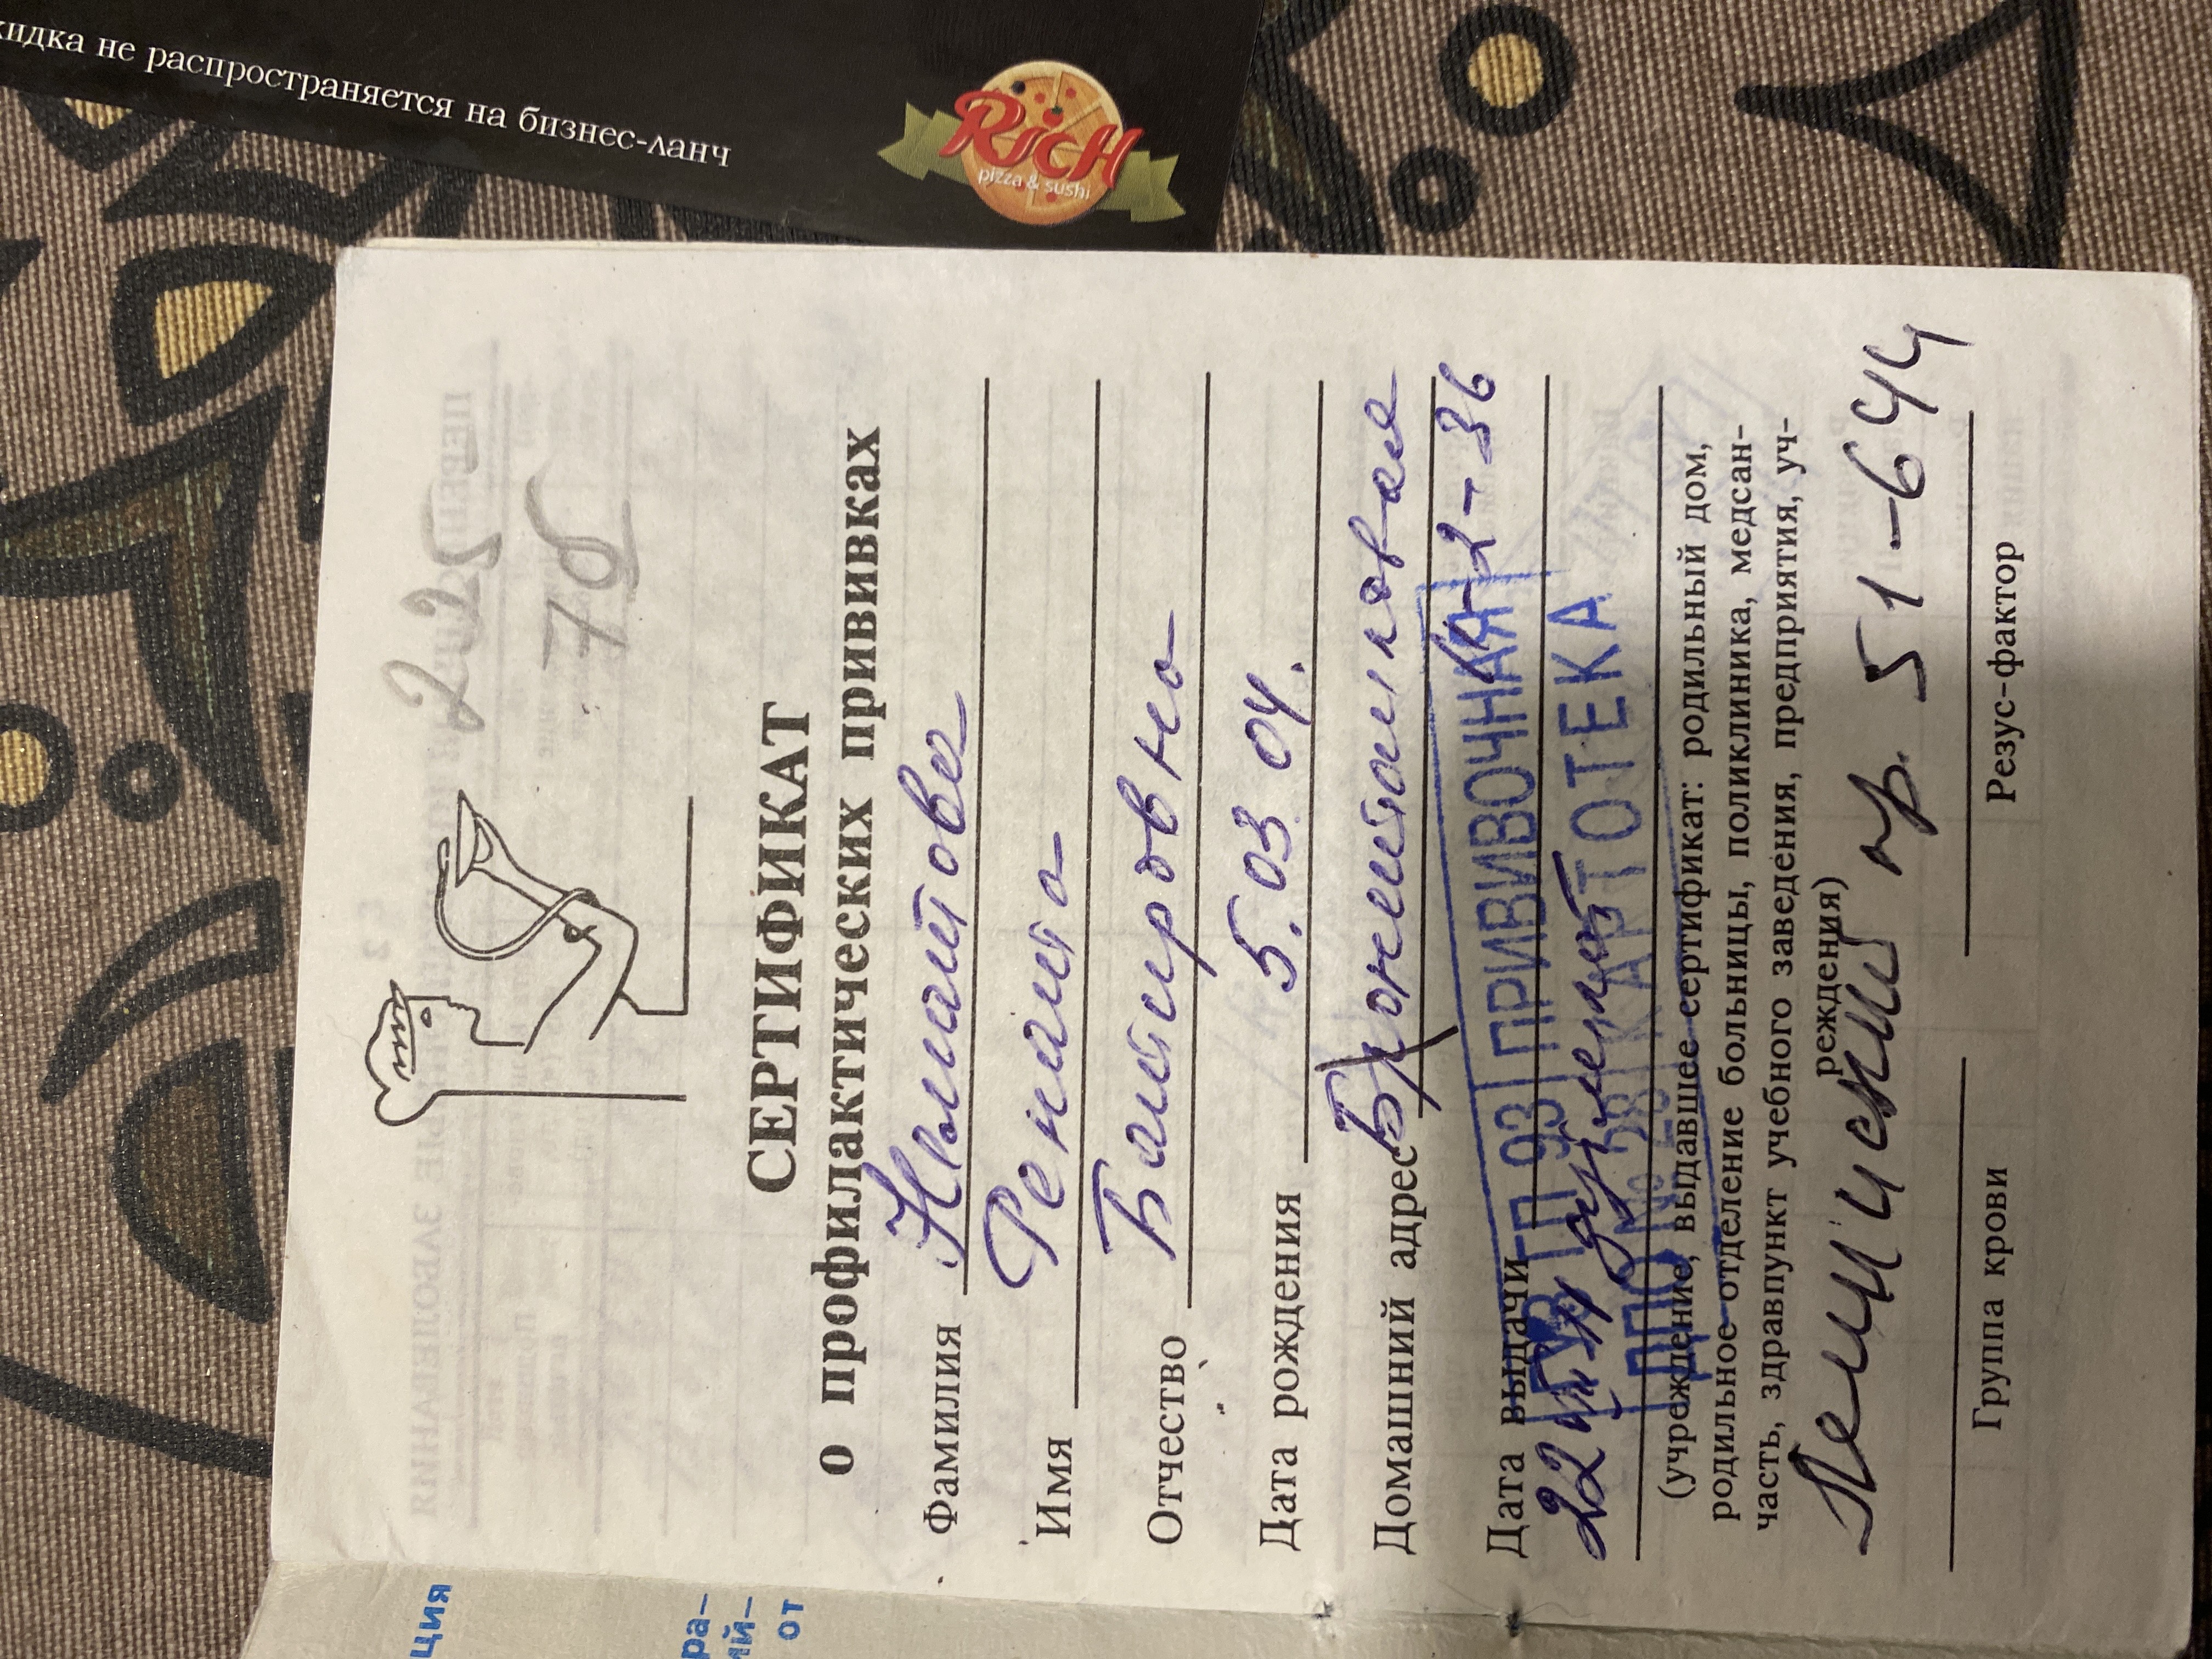 ция
ра-
ий-
от
225-
78
СЕРТИФИКАТ
о профилактических прививках
Фамилия Нематова
Имя Рената
Отчество Батировна
Дата рождения 5.03.04.
Домашний адрес
-2-36
Дата выдачи
22
ГУЗ ГП 93 ПРИВИВОЧНАЯ
ДПО № 28 КАРТОТЕКА
(учреждение, выдавшее сертификат: родильный дом,
родильное отделение больницы, поликлиника, медсан-
часть, здравпункт учебного заведения, предприятия, уч-
реждения)
Ленинский пр. 51-644
Группа крови Резус-фактор
скидка не распространяется на бизнес-ланч
RICH
pizza & sushi